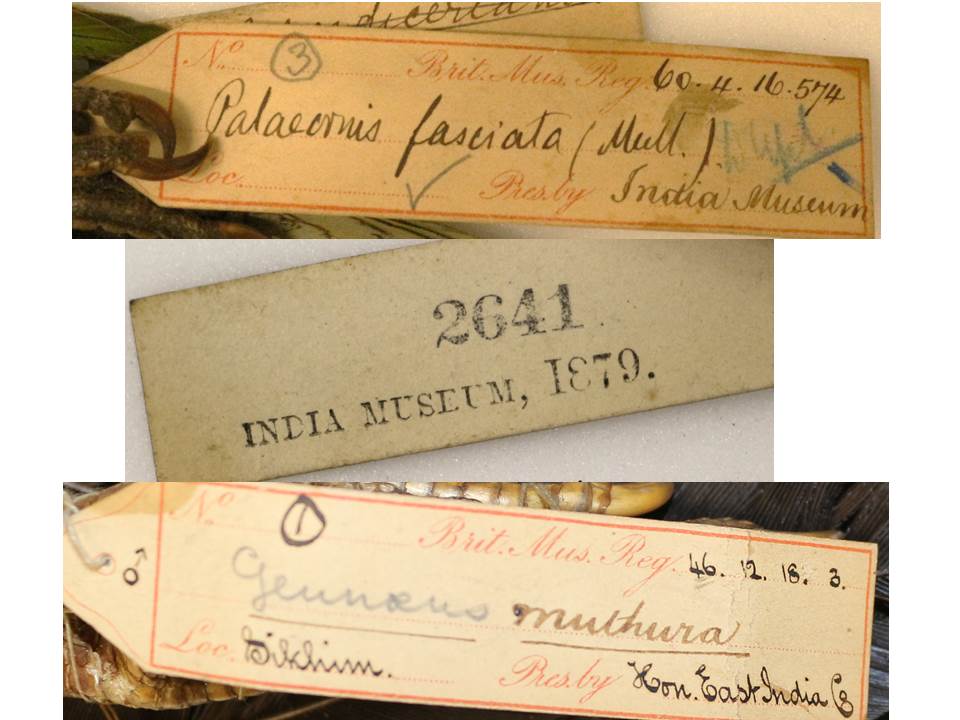 No. 3 Brit. Mus. Reg. 60.4.16.574
Palaeornis fasciata (Mull.)
Loc. Pres. by India Museum
2641
INDIA MUSEUM, 1879.
No. 1 Brit. Mus. Reg. 46.12.18.3.
♂
Gennæus muthura
Loc. Sikhim. Pres. by Hon. East India Co